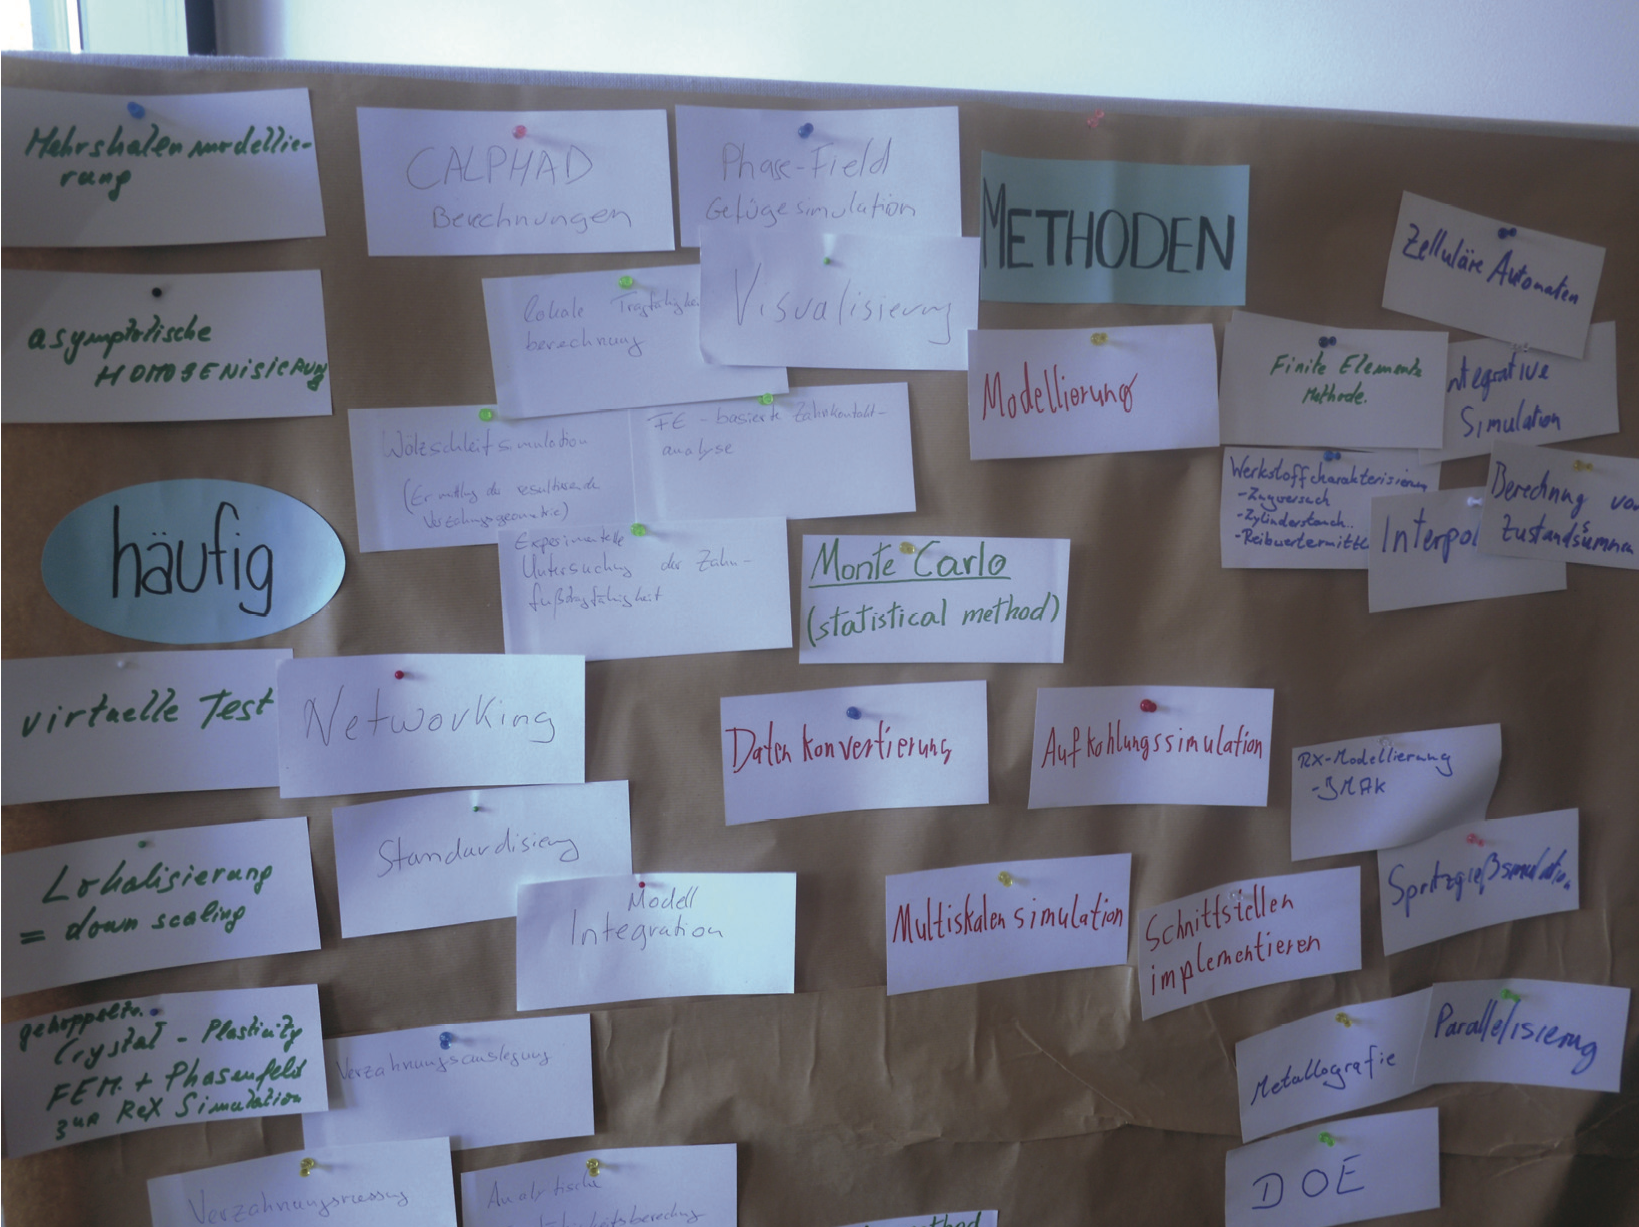 Mehrskalenmodellie-
rung
CALPHAD
Berechnungen
Phase-Field
Gefügesimulation
METHODEN
Zelluläre Automaten
asymptotische
HOMOGENISIERUNG
lokale
berechnung
Visualisierung
Modellierung
Finite Elemente
Methode.
ntegrative
Simulation
Wälzschleifsimulation
(Ermittlung der resultierenden
Verzahnungsgeometrie)
FE-basierte Zahnkontakt-
analyse
Werkstoffcharakterisierung
-Zugversuch
-Zylinderstauch..
Interpol
Berechnung vo
Zustandssummen
häufig
Experimentelle
Untersuchung der Zahn-
fußtragfähigkeit
Monte Carlo
(statistical method)
virtuelle Test
Networking
Datenkonvertierung
Aufkohlungssimulation
RX-Modellierung
-JMAK
Lokalisierung
= down scaling
Standardisierung
Modell
Integration
Multiskalensimulation
Schnittstellen
implementieren
Spritzgießsimulation
Crystal-Plasticity
FEM. + Phasenfeld
zur ReX Simulation
Verzahnungsauslegung
Metallografie
Parallelisierung
Verzahnungsmessung
Analytische
DOE